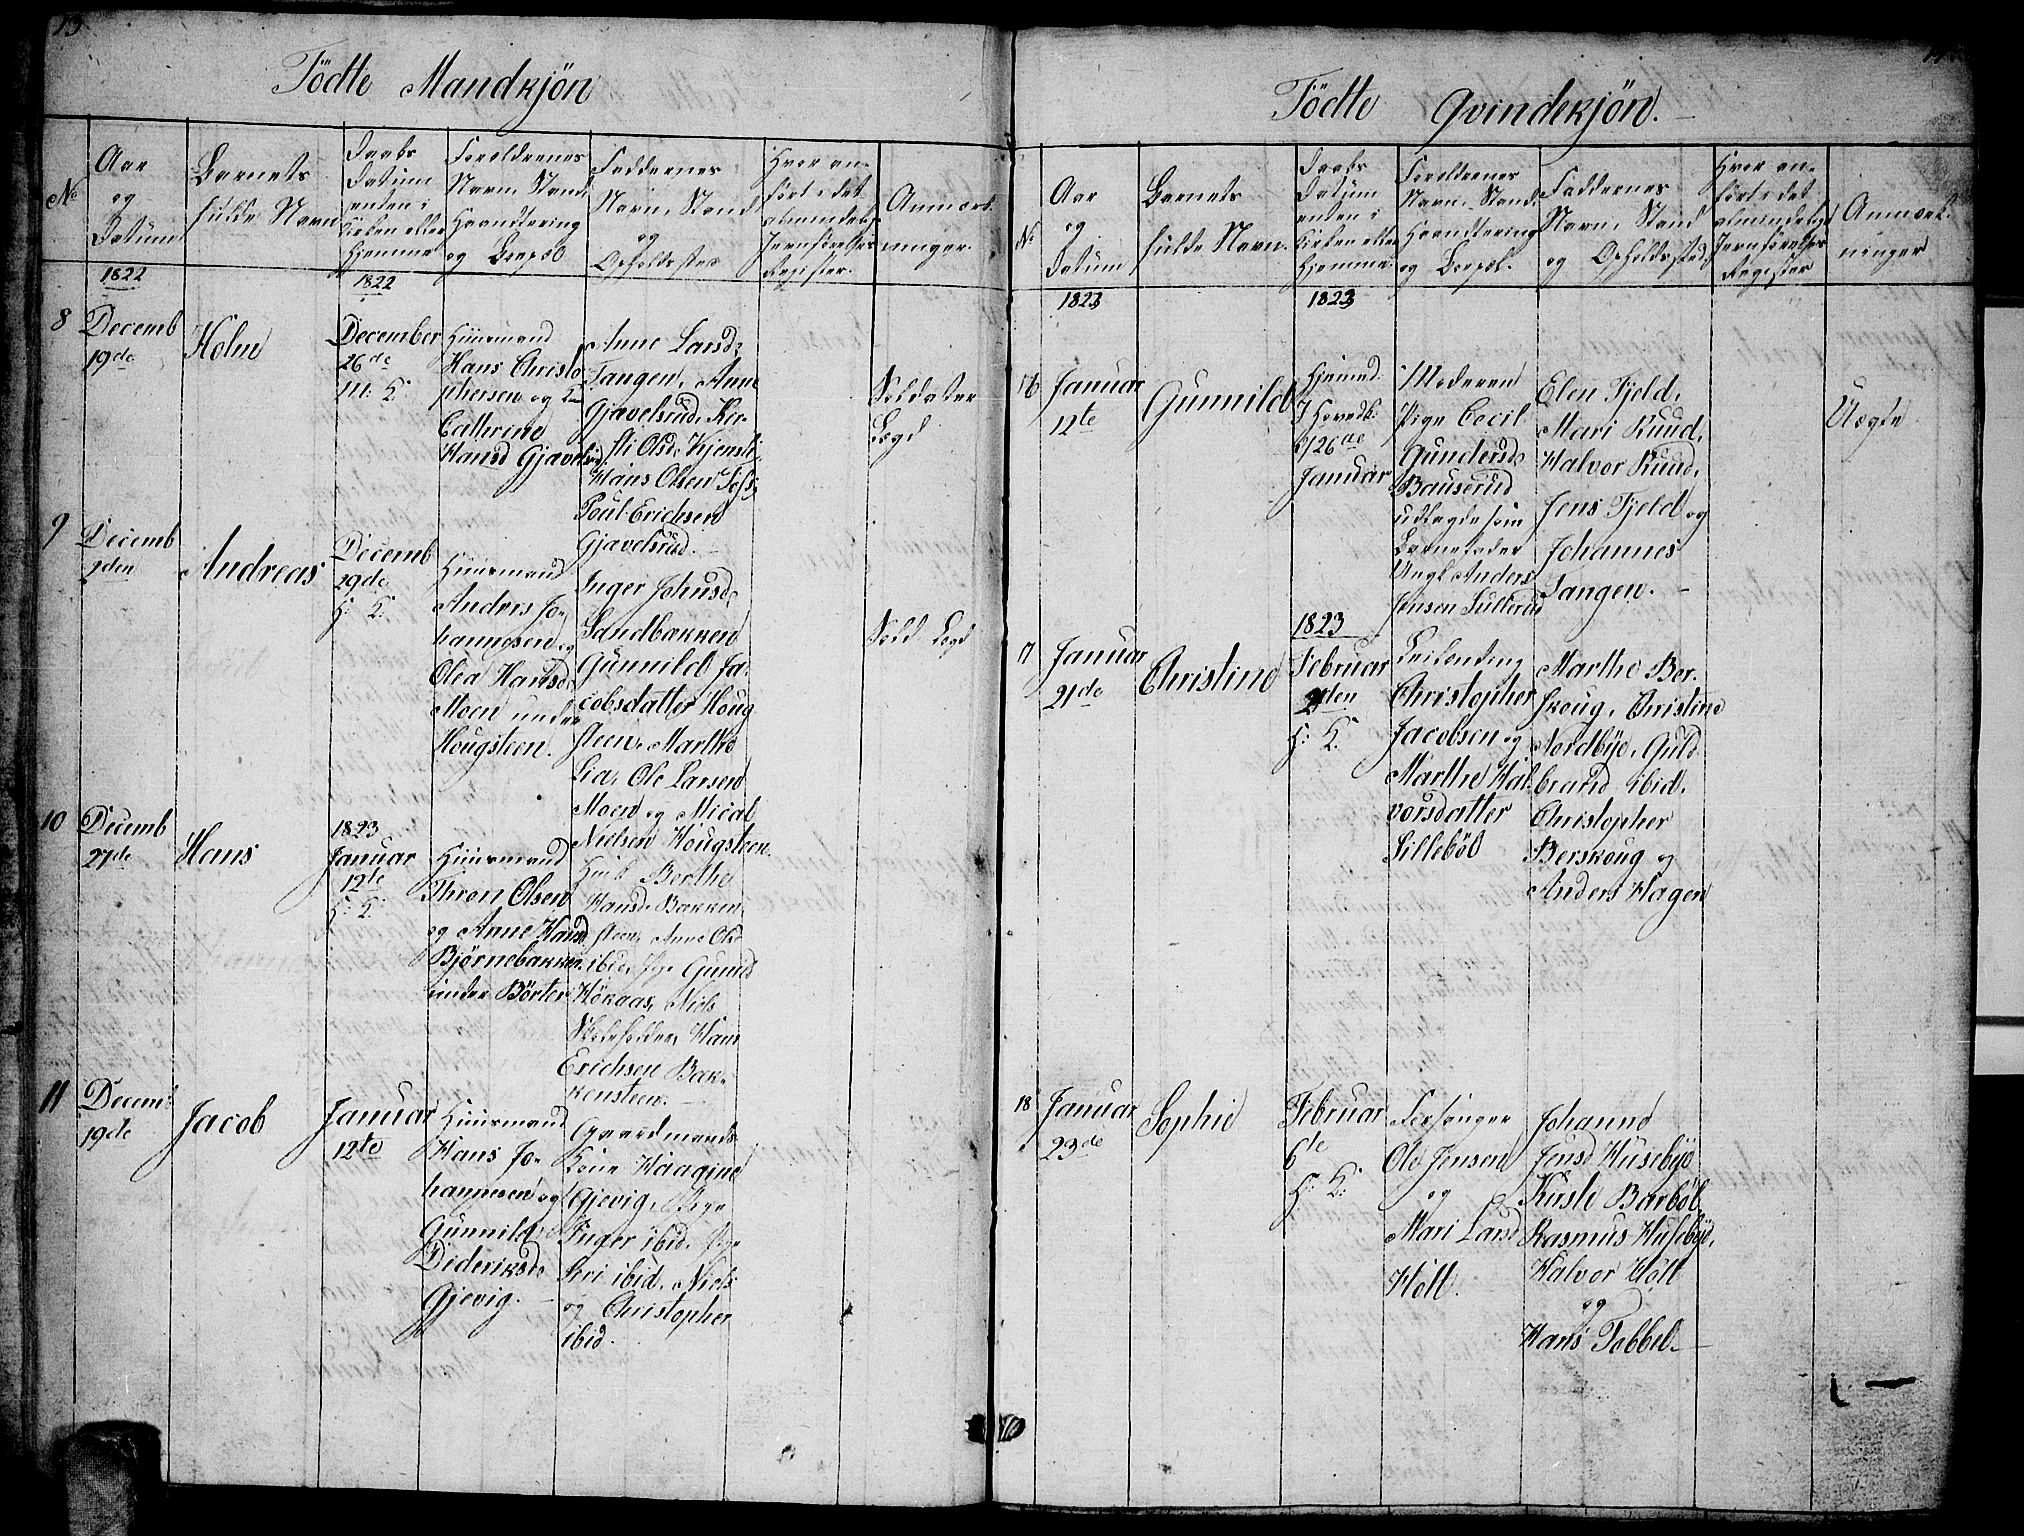 13.
Födte Mandkjön
No
Aar
og
Datum
Barnets
fulde Navn
Daabs
Datum
enten i
Kirken eller
Hjemme
Foreldrenes
Navn, Stand
Haandtering
og Bopæl
Faddernes
Navn, Stand
og
Opholdssted
Hvor an-
ført i det
almindelig
Jevnførelses
Register.
Anmærk
ninger.
1822
1822
8
Decemb
19de
Holm
December
26de
M: K:
Huusmand
Hans Christo
phersen og
Cathrine
Hansd Gjavelsrud
Anne Larsd
Tangen, Anne
Gjavelsrud, Kir-
sti Olsd Kjensli
Hans Olsen
Poul Erichsen
Gjavelsrud.
Soldater
Lægd
9
Decemb
1den
Andreas
Decemb
29de
H: K:
Huusmand
Anders Jo-
hannesen og
Olea Hansd
Moen under
Hougsteen.
Inger Johnsd
Sandbakken
Gunnild Ja-
cobsdatter Houg
steen, Marthe
Lia, Ole Larsen
Moen og Mical
Nielsen Hougsteen.
Sold Lægd
10
Decemb
27de
Hans
1823
Januar
12te
H: K:
Huusmand
Thron Olsen
og Anne Hansd
Björnebakken
under Börter
Berthe
Hansd Bakken
steen, Anne Ols
ibid, Gunild
Hökaas, Niels
Skoleholder, Hans
Erichsen Bak-
kensteen.
11
Decemb
19de
Jacob
Januar
12te
Huusmand
Hans Jo-
hannesen og
Gunnild
Dideriksd
Gjevig.
Gaardmands
Kone Haagine
Gjevig, Pige
Inger ibid, Pige
Siri ibid, Niels
og Christopher
ibid.
Födte Qvindekjön.
No
Aar
og
Datum
Barnets
fulde Navn.
Daabs
Datum
enten i
Kirken eller
Hjemme
Foreldrenes
Navn, Stand
Haandtering
og Bopæl.
Faddernes
Navn, Stand
og Opholdssted
Hvor an-
ført i det
almindelige
Jevnførelses
Register
Anmærk
ninger
1823
1823
16
Januar
12te
Gunnild
Hjemmd.
I Hovedk:
d/26de
Januar
Moderen
Pige Cecil
Gundersd
Bauserud
udlagde som
Barnefader
Ungk Anders
Jensen Tutterud
Elen Fjeld,
Mari Ruud,
Halvor Ruud,
Jens Fjeld og
Johannes
Tangen.
Uægte
17
Januar
21de
Christine
1823
Februar
2den
H: K:
Leilending
Christopher
Jacobsen og
Marthe Hal-
vorsdatter
Lilleböl
Marthe Ber-
skoug, Christine
Nordbye, Guld
brand ibid,
Christopher
Berskoug og
Anders Hagen
18
Januar
23de
Sophie
Februar
6te
H: K:
Forsanger
Ole Jensen
og
Mari Larsd
Höll.
Johanne
Jensd Husebye
Kirsti Barböl,
Rasmus Husebye,
Halvor Höll
og
Hans Tobbel.